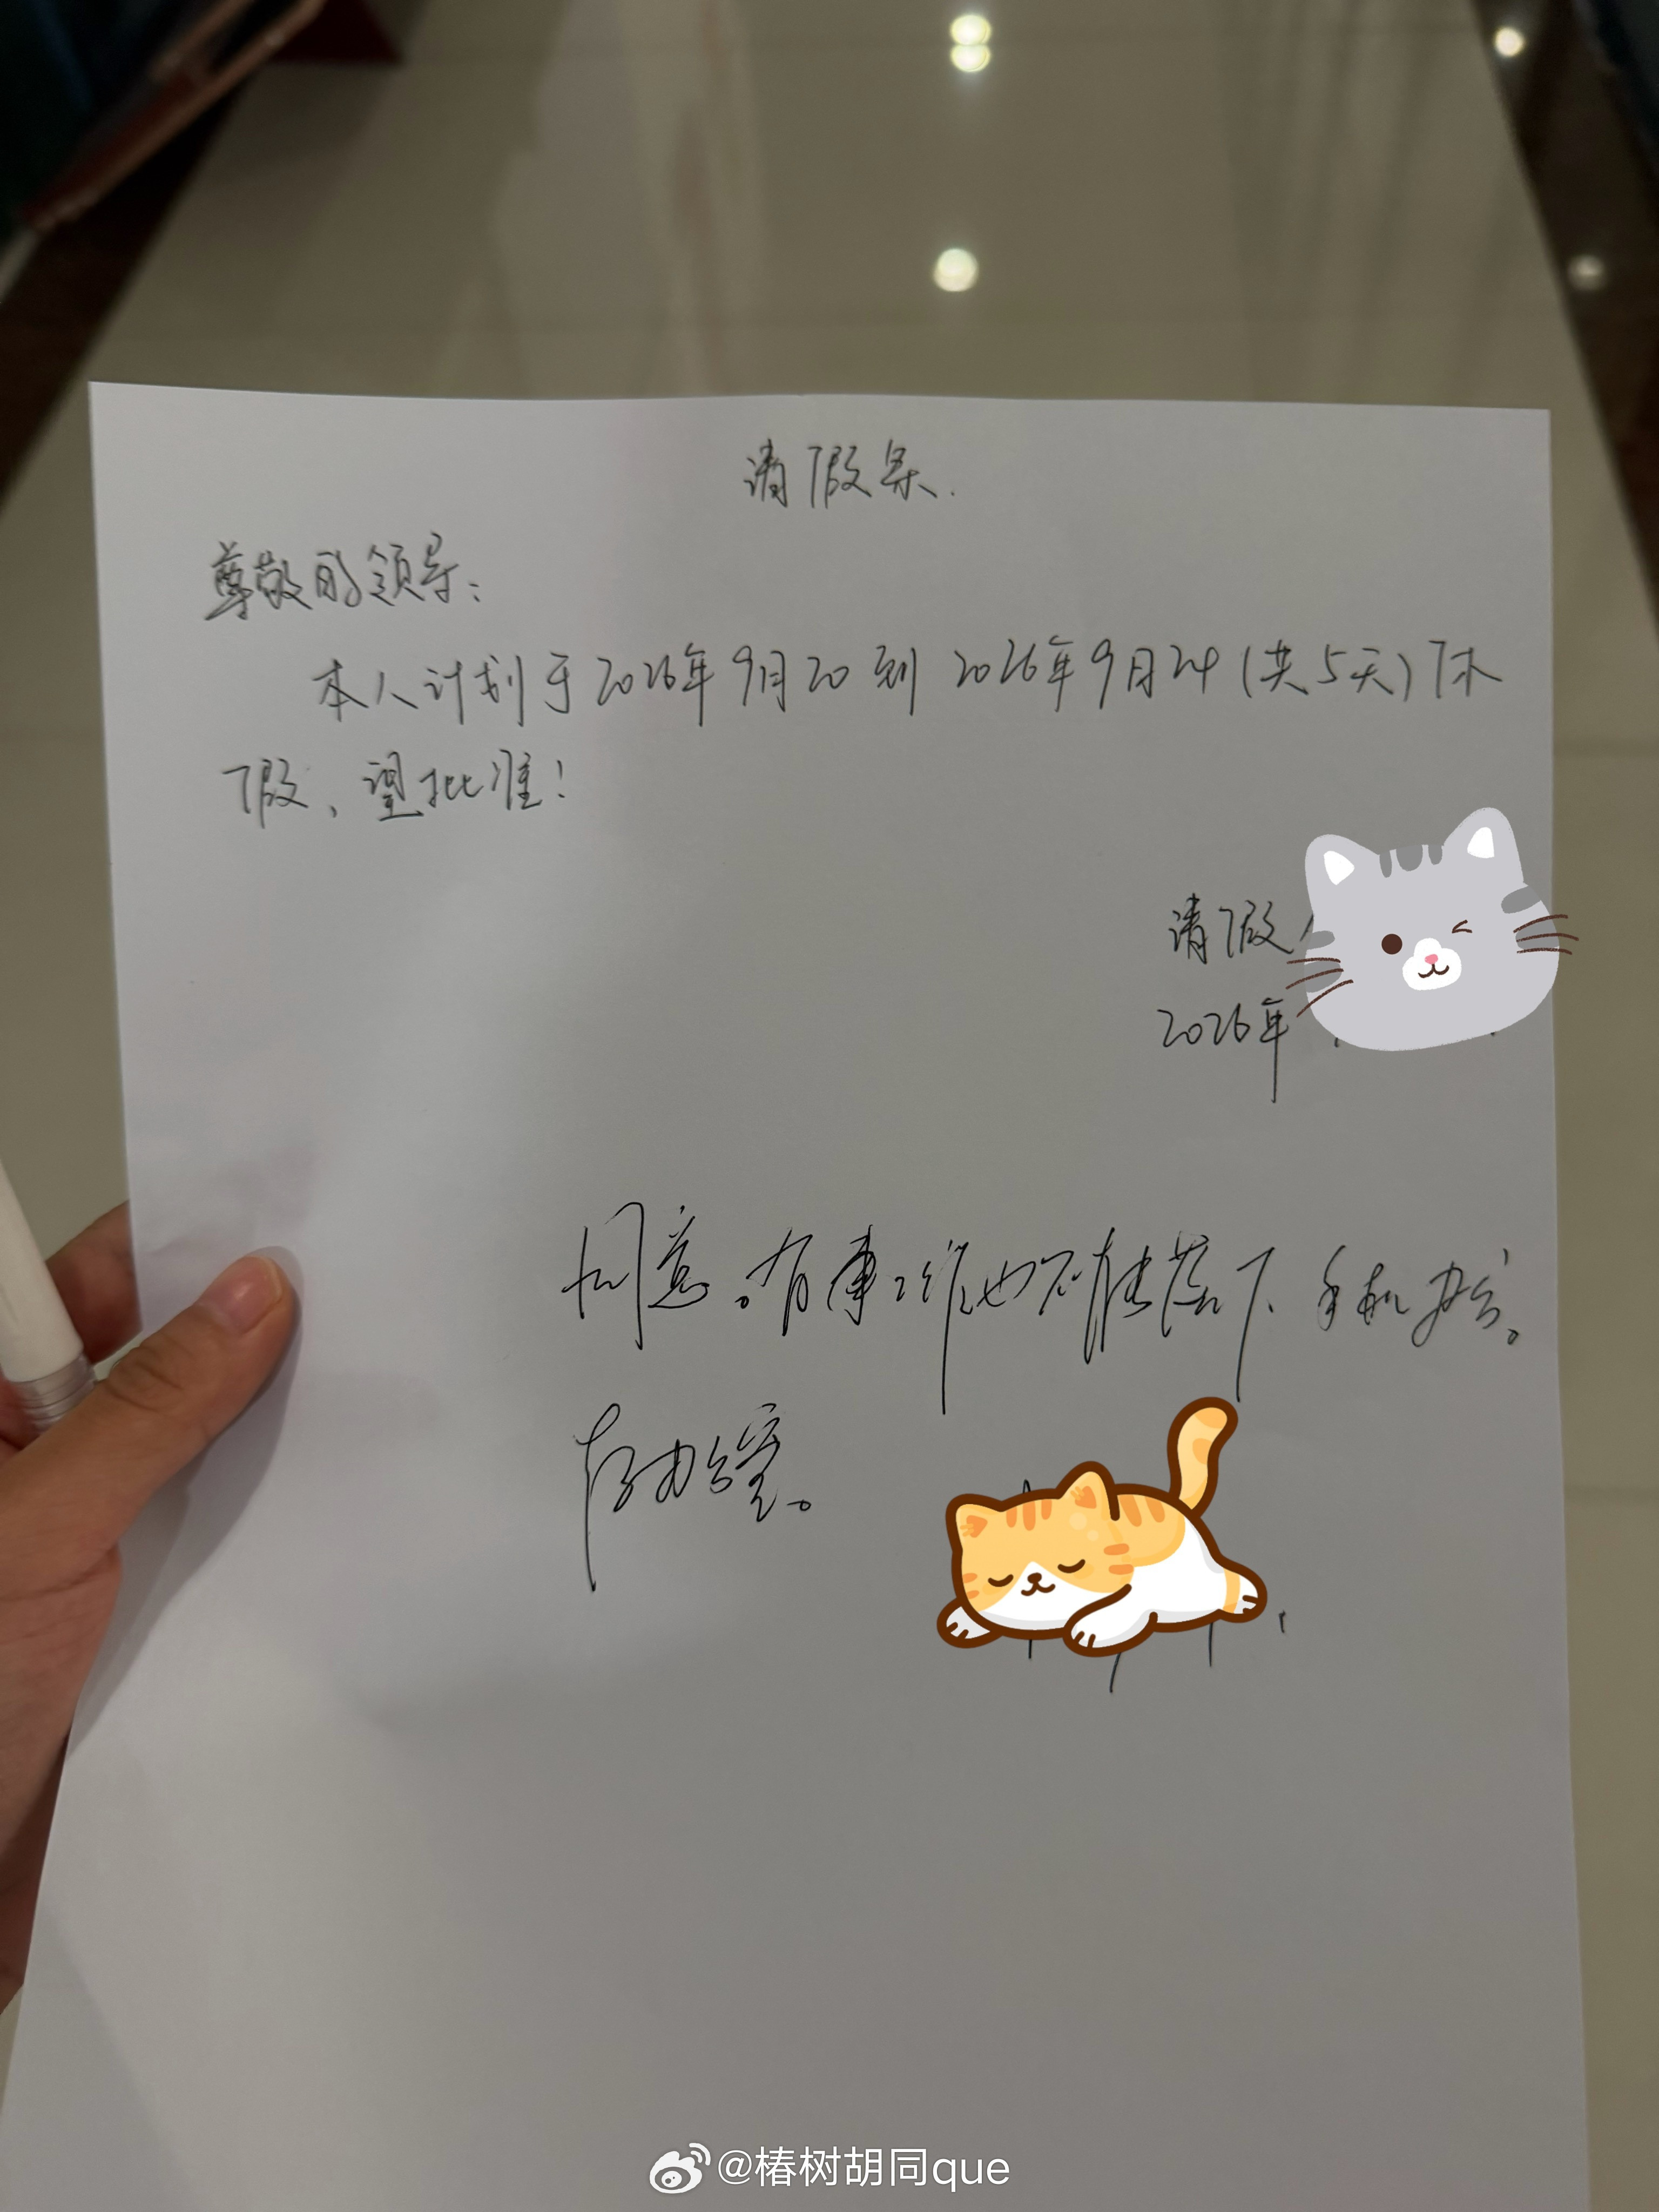 请假条.
尊敬的领导:
本人计划于2026年9月20到2026年9月24(共5天)休
假,望批准!
请假人
2026年
同意。有事工作也不能落下、手机办公。
存办公室。
@椿树胡同que